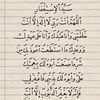 سيد الاستغفار
اللهم أنت ربي لا إله إلا أنت
خلقتني وأنا عبدك وأنا على عهدك
ووعدك ما استطعت أعوذ بك من
شر ما صنعت أبوء لك بنعمتك
علي وأبوء بذنبي فاغفر لي
فإنه لا يغفر الذنوب إلا أنت